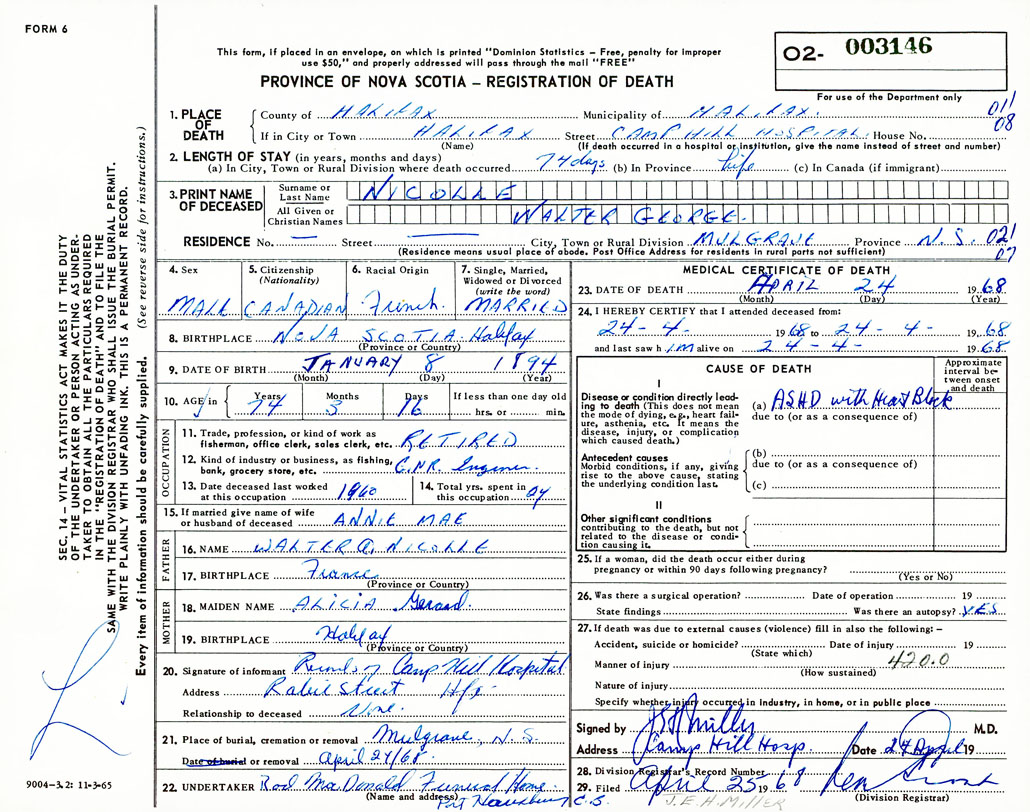 FORM 6
This form, if placed in an envelope, on which is printed "Dominion Statistics – Free, penalty for improper
use $50," and properly addressed will pass through the mail "FREE"
PROVINCE OF NOVA SCOTIA – REGISTRATION OF DEATH
O2- 003146
For use of the Department only
1. PLACE OF DEATH
County of HALIFAX Municipality of HALIFAX 011
If in City or Town HALIFAX Street CAMP HILL HOSPITAL House No. 08
(Name) (If death occurred in a hospital or institution, give the name instead of street and number)
2. LENGTH OF STAY (in years, months and days)
(a) In City, Town or Rural Division where death occurred 74 days (b) In Province Life (c) In Canada (if immigrant)
3. PRINT NAME OF DECEASED
Surname or Last Name NICOLLE
All Given or Christian Names WALTER GEORGE.
RESIDENCE No. — Street — City, Town or Rural Division MULGRAVE Province N.S. 021
(Residence means usual place of abode. Post Office Address for residents in rural parts not sufficient) 07
4. Sex MALE
5. Citizenship (Nationality) CANADIAN
6. Racial Origin French
7. Single, Married, Widowed or Divorced (write the word) MARRIED
8. BIRTHPLACE NOVA SCOTIA Halifax
(Province or Country)
9. DATE OF BIRTH JANUARY 8 1894
(Month) (Day) (Year)
10. AGE in Years 74 Months 3 Days 16 If less than one day old hrs. or min.
OCCUPATION
11. Trade, profession, or kind of work as
fisherman, office clerk, sales clerk, etc. RETIRED
12. Kind of industry or business, as fishing,
bank, grocery store, etc. C.N.R. Engineer.
13. Date deceased last worked
at this occupation 1960
14. Total yrs. spent in
this occupation
15. If married give name of wife
or husband of deceased ANNIE MAE
FATHER
16. NAME WALTER G. NICOLLE
17. BIRTHPLACE France
(Province or Country)
MOTHER
18. MAIDEN NAME ALICIA Gerard.
19. BIRTHPLACE Halifax
(Province or Country)
20. Signature of informant Camp Hill Hospital
Address Robie Street Hfx
Relationship to deceased None.
21. Place of burial, cremation or removal Mulgrave, N.S.
Date of burial or removal April 24/68
22. UNDERTAKER Rod MacDonald Funeral Home.
(Name and address) Port Hawkesbury C.B.
MEDICAL CERTIFICATE OF DEATH
23. DATE OF DEATH APRIL 24 1968
(Month) (Day) (Year)
24. I HEREBY CERTIFY that I attended deceased from:
24 - 4 - 1968 to 24 - 4 - 1968
and last saw him alive on 24 - 4 - 1968
CAUSE OF DEATH
Approximate interval between onset and death
I
Disease or condition directly leading to death (This does not mean the mode of dying, e.g., heart failure, asthenia, etc. It means the disease, injury, or complication which caused death.)
(a) ASHD with Heart Block
due to (or as a consequence of)
Antecedent causes
Morbid conditions, if any, giving rise to the above cause, stating the underlying condition last.
(b)
due to (or as a consequence of)
(c)
II
Other significant conditions
contributing to the death, but not related to the disease or condition causing it.
25. If a woman, did the death occur either during
pregnancy or within 90 days following pregnancy?
(Yes or No)
26. Was there a surgical operation? Date of operation 19
State findings Was there an autopsy? YES
27. If death was due to external causes (violence) fill in also the following: –
Accident, suicide or homicide? Date of injury 19
(State which)
Manner of injury 420.0
(How sustained)
Nature of injury
Specify whether injury occurred in industry, in home, or in public place
Signed by M.D.
Address Camp Hill Hosp. Date 24 April 19
28. Division Registrar's Record Number
29. Filed April 25 1968
(Division Registrar)
J.E.H. MILLER
SEC. 14 – VITAL STATISTICS ACT MAKES IT THE DUTY
OF THE UNDERTAKER OR PERSON ACTING AS UNDER-
TAKER TO OBTAIN ALL THE PARTICULARS REQUIRED
IN THE "REGISTRATION OF DEATH" AND TO FILE THE
SAME WITH THE DIVISION REGISTRAR WHO SHALL ISSUE THE BURIAL PERMIT.
WRITE PLAINLY WITH UNFADING INK. THIS IS A PERMANENT RECORD.
Every item of information should be carefully supplied. (See reverse side for instructions.)
9004-3.2: 11-3-65